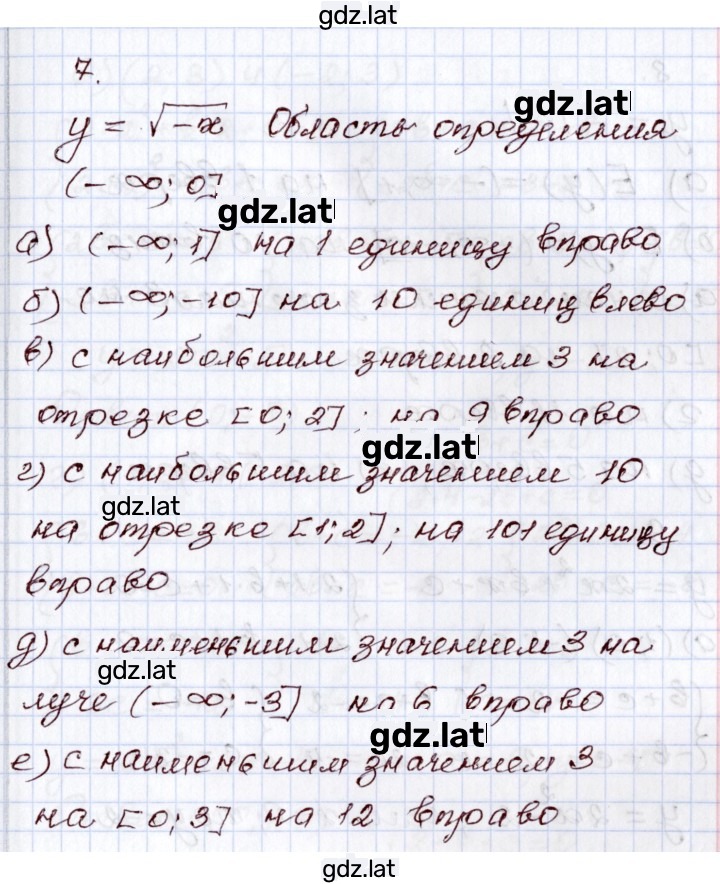 gdz.lat
7.
gdz.lat
y = √-x Область определения
(-∞; 0]
gdz.lat
а) (-∞; 1] на 1 единицу вправо
б) (-∞; -10] на 10 единиц влево
в) с наибольшим значением 3 на
отрезке [0; 2]; на 9 вправо
gdz.lat
г) с наибольшим значением 10
gdz.lat
на отрезке [1; 2]; на 101 единицу
вправо
д) с наименьшим значением 3 на
gdz.lat
луче (-∞; -3] на 6 вправо
gdz.lat
е) с наименьшим значением 3
на [0; 3] на 12 вправо
gdz.lat